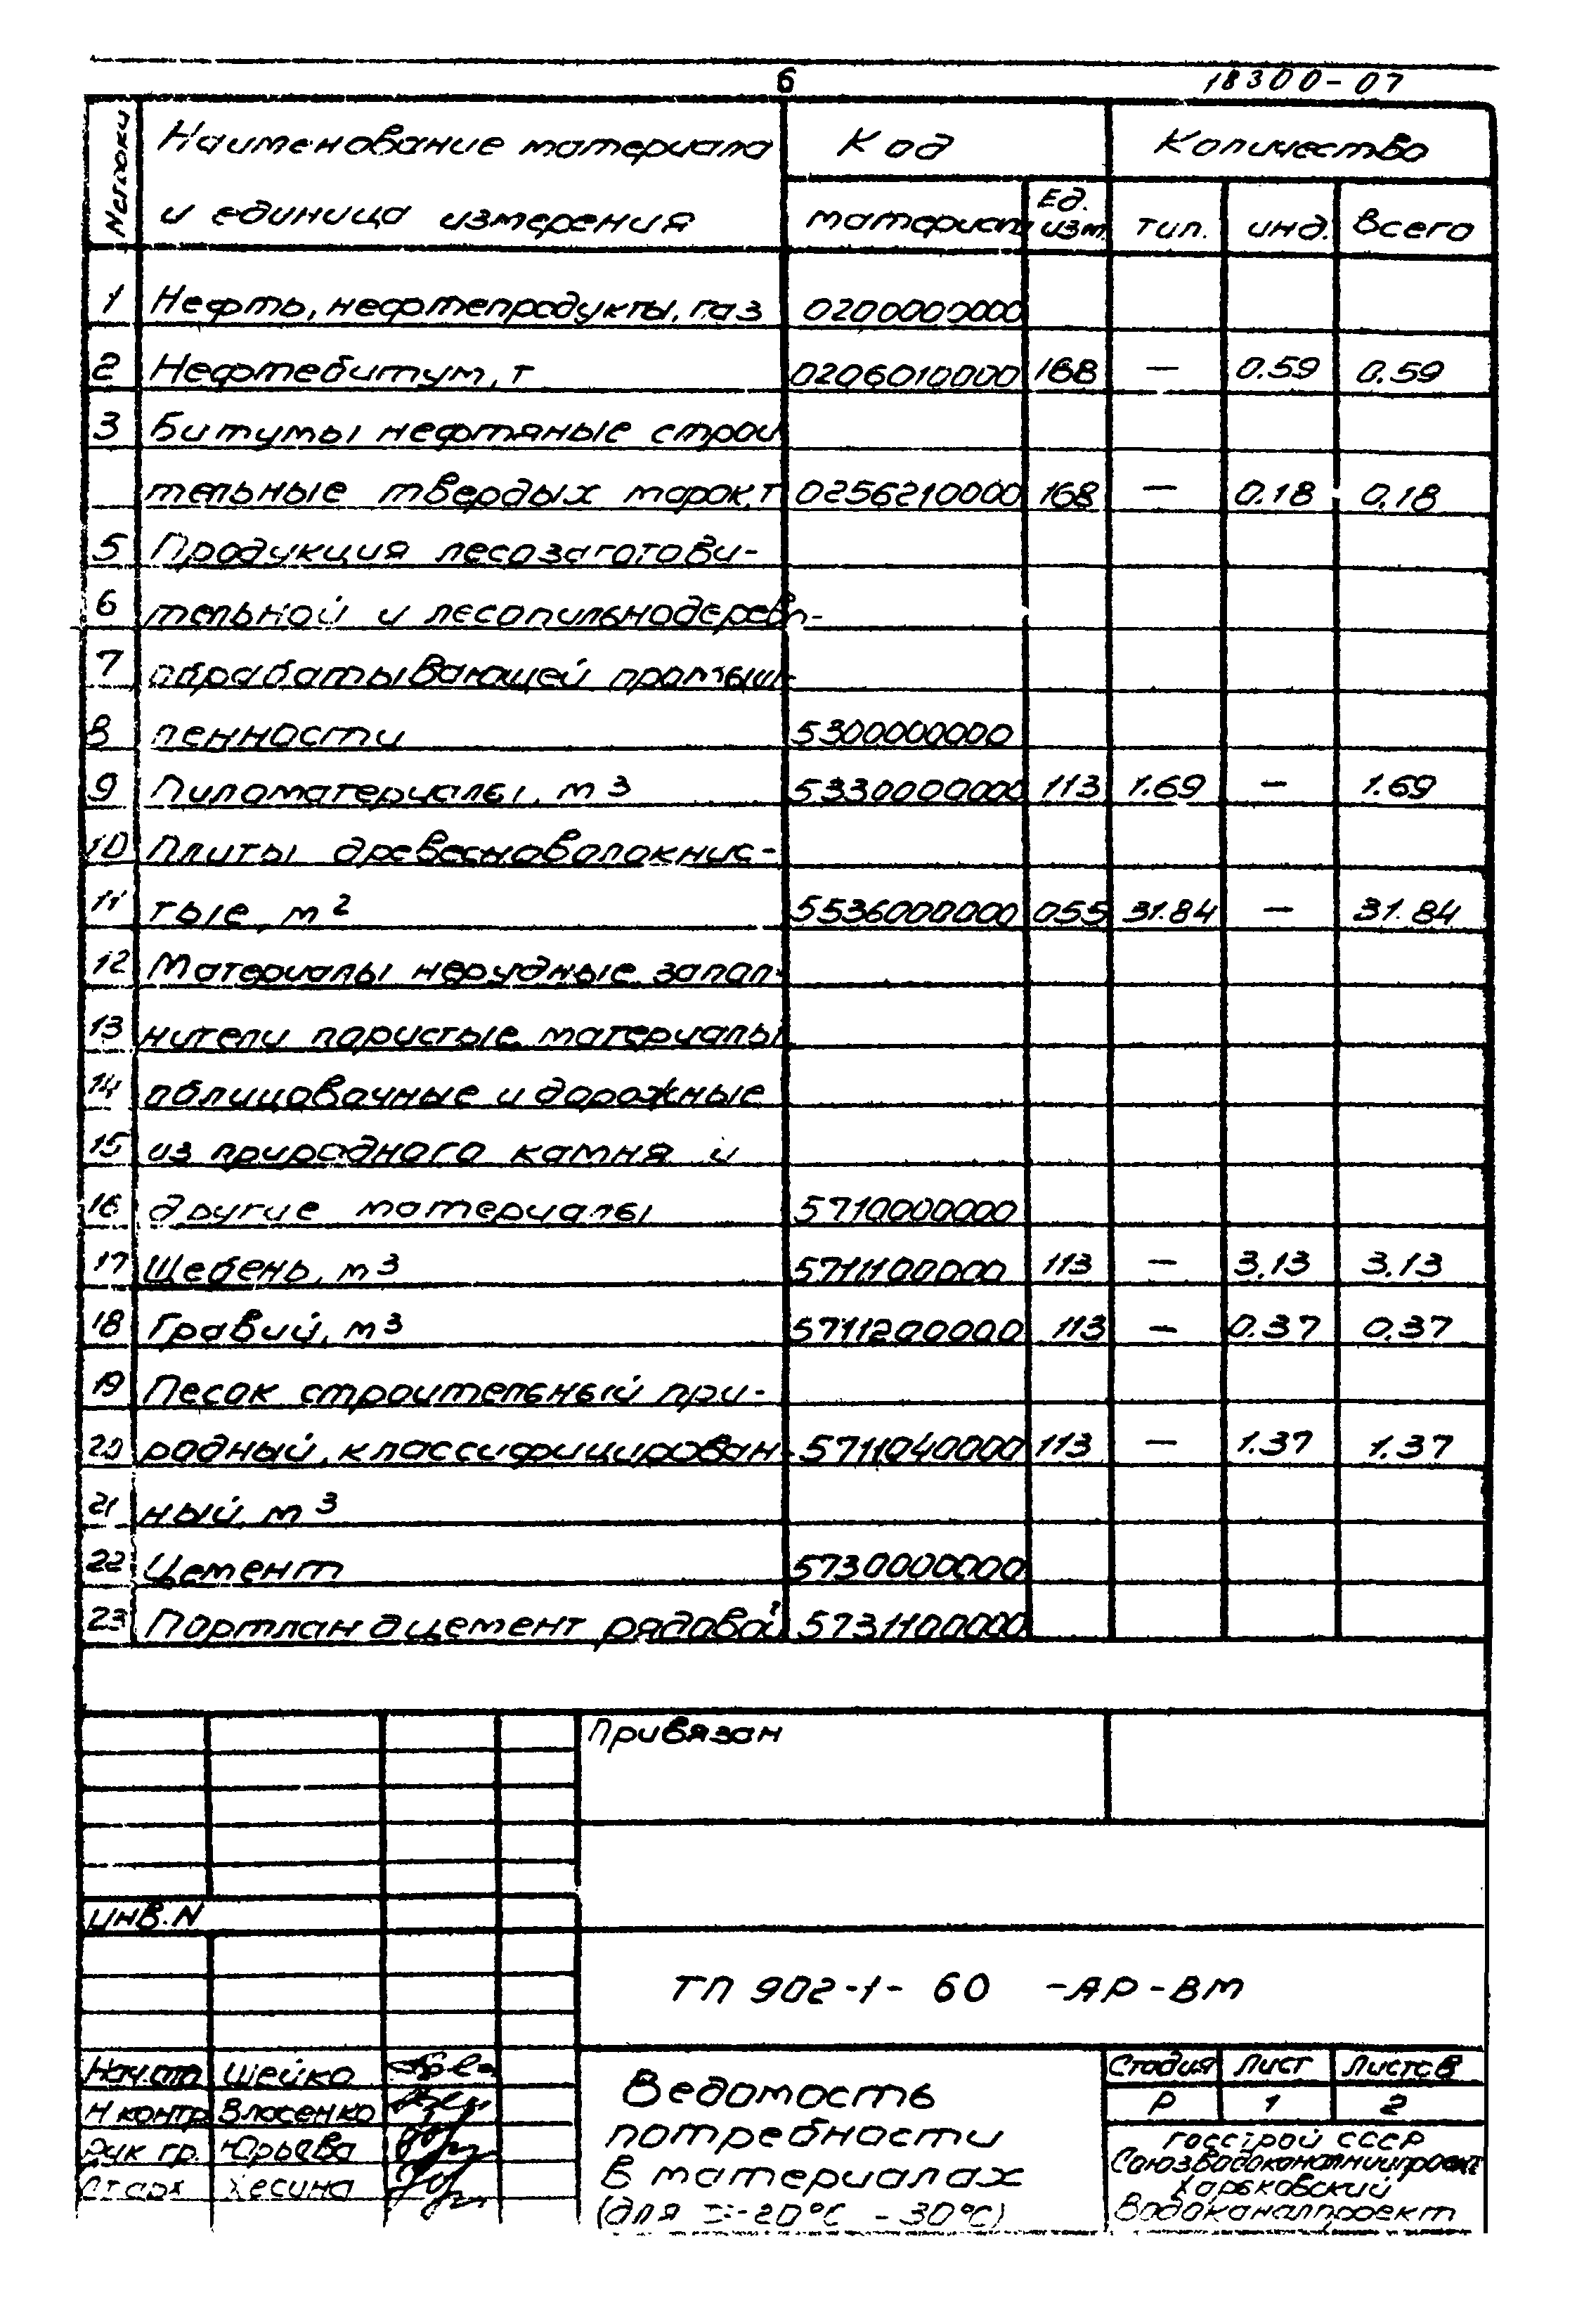 6 18300-07
№ строки Наименование материала Код Количество
и единица измерения материал Ед. изм. тип. инд. Всего
1 Нефть, нефтепродукты, газ 0200000000
2 Нефтебитум, т 0206010000 168 — 0.59 0.59
3 Битумы нефтяные строи
тельные твердых марок, т 0256210000 168 — 0.18 0.18
5 Продукция лесозаготови-
6 тельной и лесопильнодерево-
7 обрабатывающей промыш-
8 ленности 5300000000
9 Пиломатериалы, м3 5330000000 113 1.69 — 1.69
10 Плиты древесноволокнис-
11 тые, м2 5536000000 055 31.84 — 31.84
12 Материалы нерудные, запол-
13 нители пористые, материалы
14 облицовочные и дорожные
15 из природного камня и
16 другие материалы 5710000000
17 Щебень, м3 5711100000 113 — 3.13 3.13
18 Гравий, м3 5711200000 113 — 0.37 0.37
19 Песок строительный при-
20 родный, классифицирован- 5711040000 113 — 1.37 1.37
21 ный, м3
22 Цемент 5730000000
23 Портландцемент рядовой 5731100000
Привязан
инв. N
ТП 902-1- 60 -АР-ВМ
Нач.отд Шейко
Н контр Власенко
Рук гр. Юрьева
Старх Хесина
Ведомость
потребности
в материалах
(для -20°С -30°С)
Стадия Лист Листов
Р 1 2
Госстрой СССР
Союзводоканалниипроект
Харьковский
Водоканалпроект